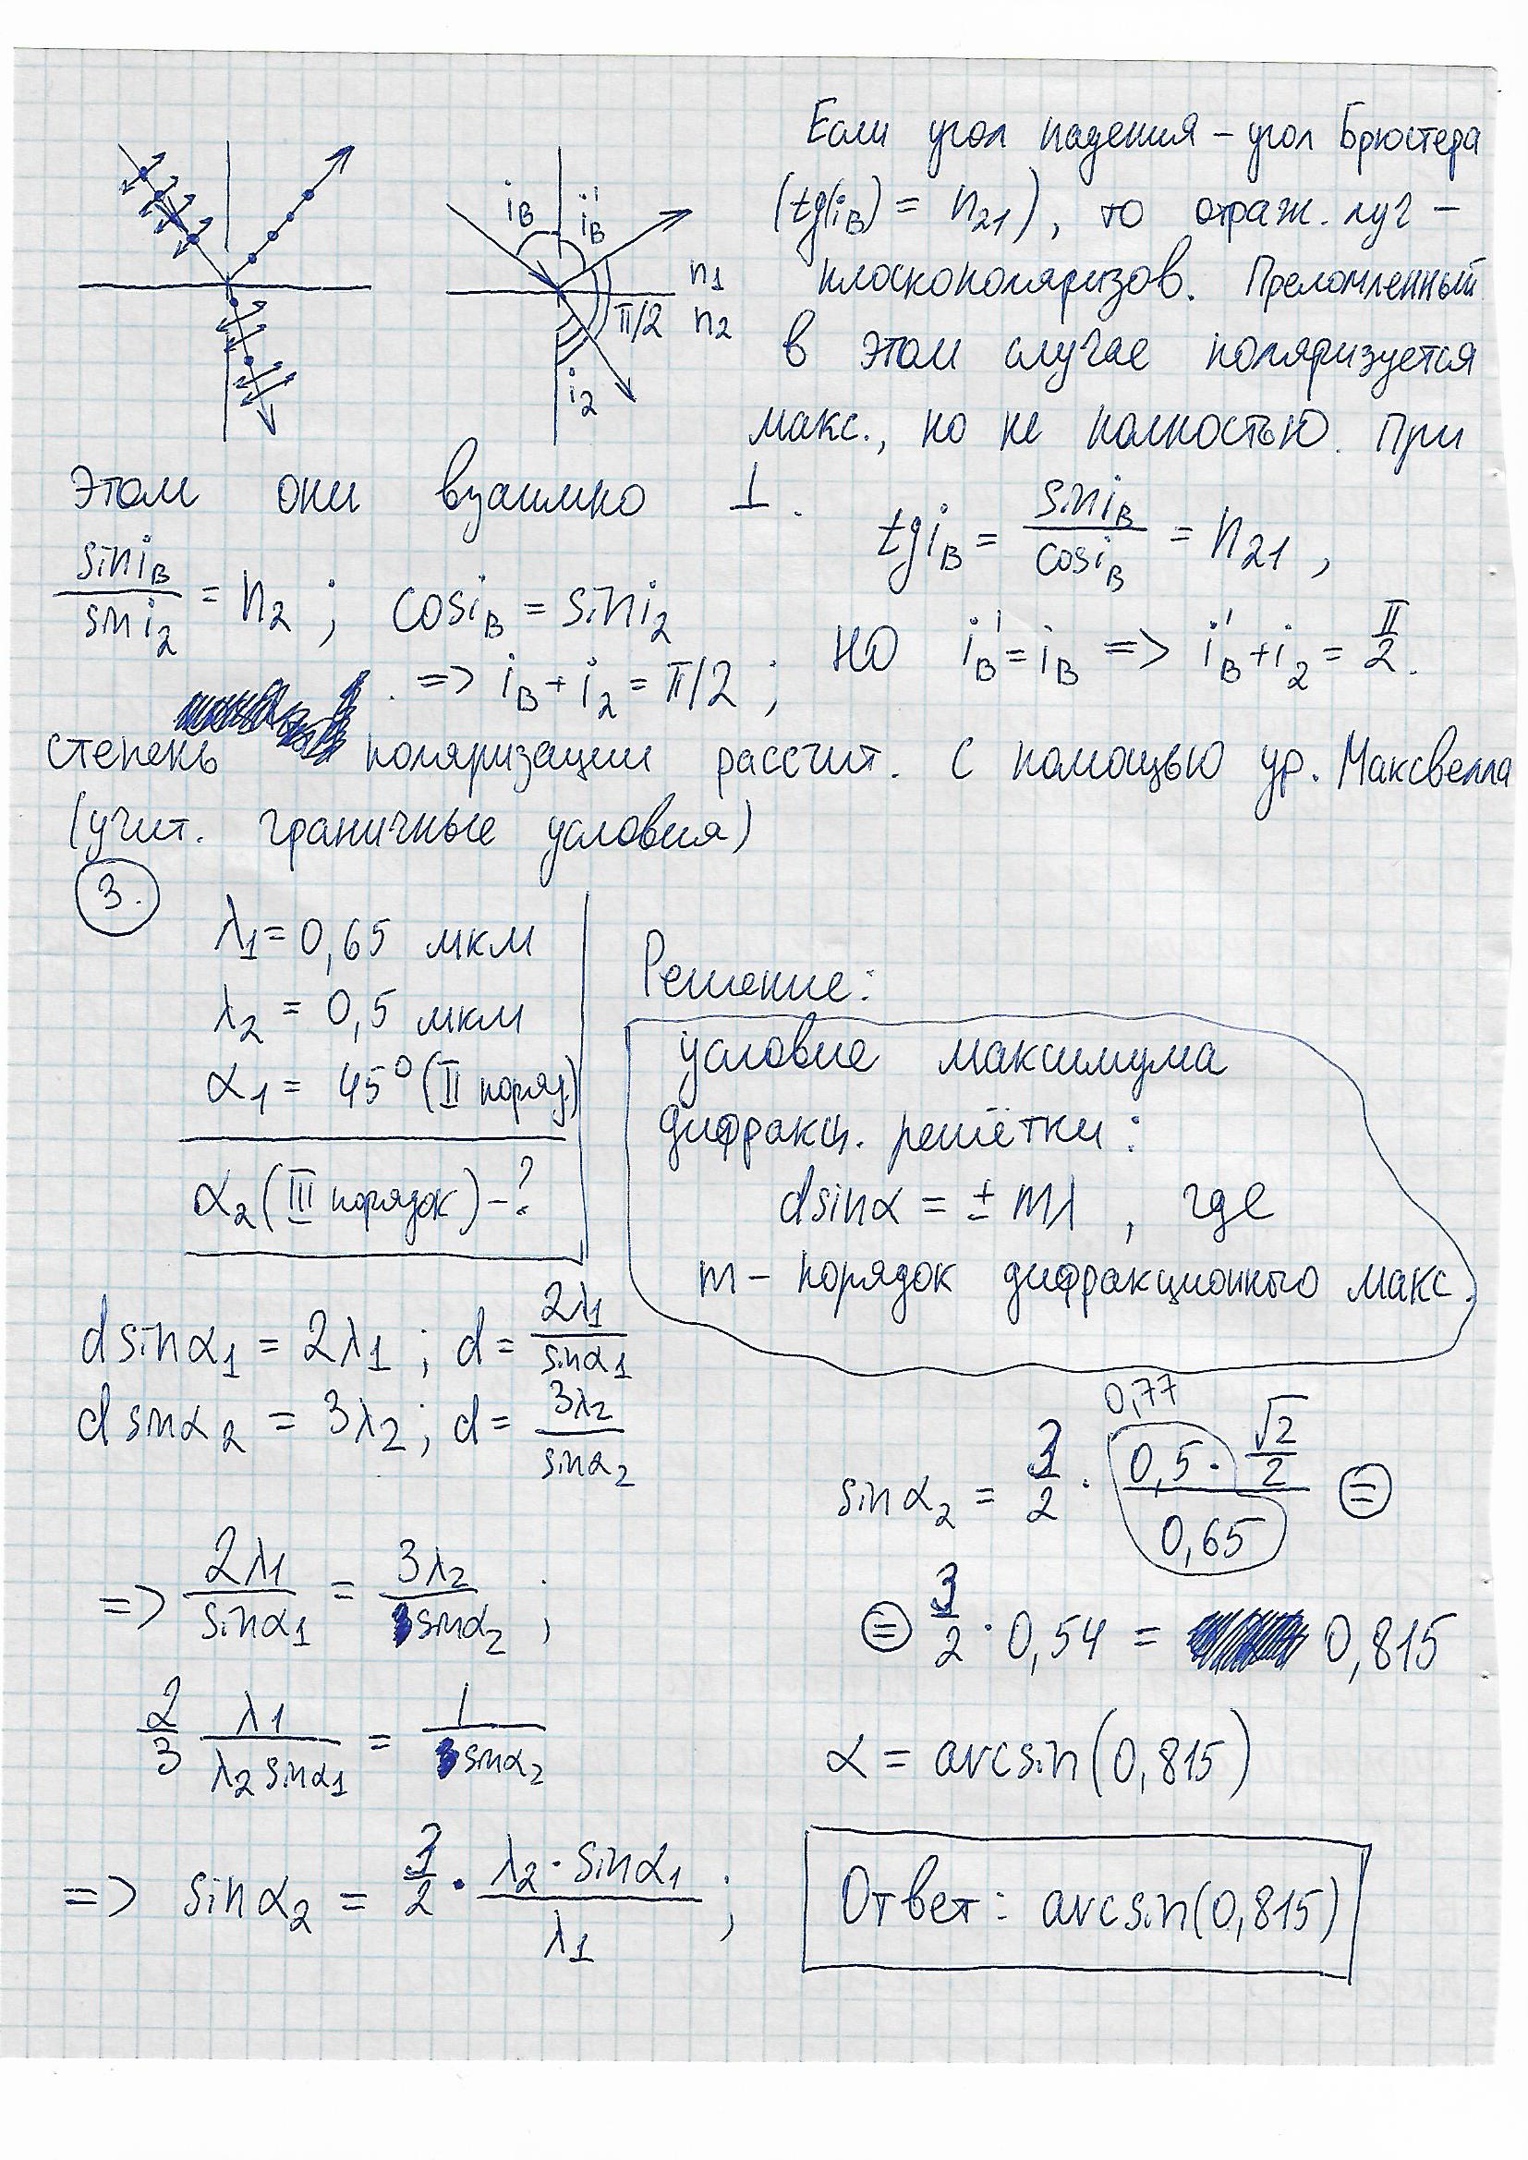 Если угол падения – угол Брюстера
(tg(iB) = n21), то отраж. луч –
плоскополяризов. Преломленный
в этом случае поляризуется
макс., но не полностью. При
этом они взаимно ⊥.
iB i'B n1 n2 π/2 i2
tg iB = sin iB / cos iB = n21 ,
sin iB / sin i2 = n2 ; cos iB = sin i2
=> iB + i2 = π/2 ; но i'B = iB => i'B + i2 = π/2.
степень поляризации рассчит. с помощью ур. Максвелла
(учит. граничные условия)
3.
λ1 = 0,65 мкм
λ2 = 0,5 мкм
α1 = 45° (II поряд.)
α2 (III порядок) – ?
Решение:
условие максимума
дифракц. решётки:
d sin α = ± mλ , где
m – порядок дифракционного макс.
d sin α1 = 2λ1 ; d = 2λ1 / sin α1
d sin α2 = 3λ2 ; d = 3λ2 / sin α2
=> 2λ1 / sin α1 = 3λ2 / sin α2 ;
2/3 λ1 / λ2 sin α1 = 1 / sin α2
=> sin α2 = 3/2 · λ2 · sin α1 / λ1 ;
0,77
sin α2 = 3/2 · 0,5 · √2/2 / 0,65 =
= 3/2 · 0,54 = 0,815
α = arcsin(0,815)
Ответ: arcsin(0,815)